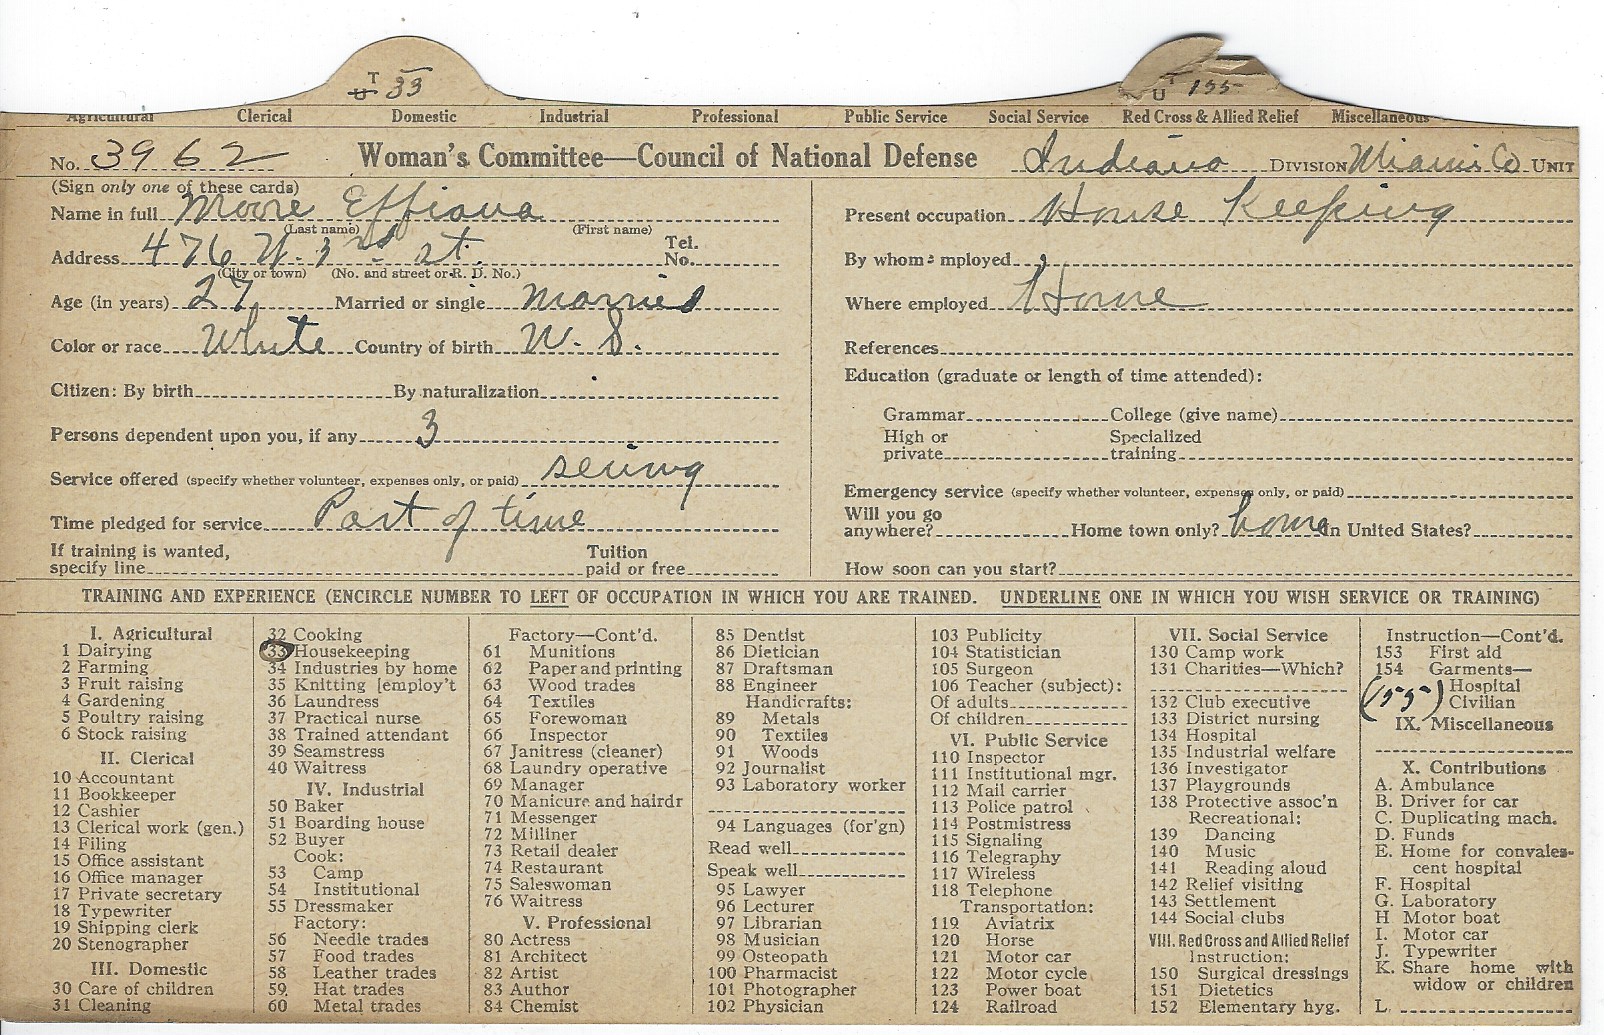 T
U 33
T
U 155
Agricultural Clerical Domestic Industrial Professional Public Service Social Service Red Cross & Allied Relief Miscellaneous
No. 3962 Woman's Committee—Council of National Defense Indiana DIVISION Miami Co UNIT
(Sign only one of these cards)
Name in full Moore Effiana
(Last name) (First name)
Address 476 W. 3rd st. Tel. No.
(City or town) (No. and street or R. D. No.)
Age (in years) 27 Married or single Married
Color or race White Country of birth U. S.
Citizen: By birth By naturalization
Persons dependent upon you, if any 3
Service offered (specify whether volunteer, expenses only, or paid) seiwng
Time pledged for service Part of time
If training is wanted,
specify line Tuition paid or free
Present occupation House Keeping
By whom employed
Where employed Home
References
Education (graduate or length of time attended):
Grammar College (give name)
High or private Specialized training
Emergency service (specify whether volunteer, expenses only, or paid)
Will you go anywhere? Home town only? home In United States?
How soon can you start?
TRAINING AND EXPERIENCE (ENCIRCLE NUMBER TO LEFT OF OCCUPATION IN WHICH YOU ARE TRAINED. UNDERLINE ONE IN WHICH YOU WISH SERVICE OR TRAINING)
I. Agricultural
1 Dairying
2 Farming
3 Fruit raising
4 Gardening
5 Poultry raising
6 Stock raising
II. Clerical
10 Accountant
11 Bookkeeper
12 Cashier
13 Clerical work (gen.)
14 Filing
15 Office assistant
16 Office manager
17 Private secretary
18 Typewriter
19 Shipping clerk
20 Stenographer
III. Domestic
30 Care of children
31 Cleaning
32 Cooking
33 Housekeeping
34 Industries by home
35 Knitting [employ't
36 Laundress
37 Practical nurse
38 Trained attendant
39 Seamstress
40 Waitress
IV. Industrial
50 Baker
51 Boarding house
52 Buyer
Cook:
53 Camp
54 Institutional
55 Dressmaker
Factory:
56 Needle trades
57 Food trades
58 Leather trades
59 Hat trades
60 Metal trades
Factory—Cont'd.
61 Munitions
62 Paper and printing
63 Wood trades
64 Textiles
65 Forewoman
66 Inspector
67 Janitress (cleaner)
68 Laundry operative
69 Manager
70 Manicure and hairdr
71 Messenger
72 Milliner
73 Retail dealer
74 Restaurant
75 Saleswoman
76 Waitress
V. Professional
80 Actress
81 Architect
82 Artist
83 Author
84 Chemist
85 Dentist
86 Dietician
87 Draftsman
88 Engineer
Handicrafts:
89 Metals
90 Textiles
91 Woods
92 Journalist
93 Laboratory worker
94 Languages (for'gn)
Read well
Speak well
95 Lawyer
96 Lecturer
97 Librarian
98 Musician
99 Osteopath
100 Pharmacist
101 Photographer
102 Physician
103 Publicity
104 Statistician
105 Surgeon
106 Teacher (subject):
Of adults
Of children
VI. Public Service
110 Inspector
111 Institutional mgr.
112 Mail carrier
113 Police patrol
114 Postmistress
115 Signaling
116 Telegraphy
117 Wireless
118 Telephone
Transportation:
119 Aviatrix
120 Horse
121 Motor car
122 Motor cycle
123 Power boat
124 Railroad
VII. Social Service
130 Camp work
131 Charities—Which?
132 Club executive
133 District nursing
134 Hospital
135 Industrial welfare
136 Investigator
137 Playgrounds
138 Protective assoc'n
Recreational:
139 Dancing
140 Music
141 Reading aloud
142 Relief visiting
143 Settlement
144 Social clubs
VIII. Red Cross and Allied Relief
Instruction:
150 Surgical dressings
151 Dietetics
152 Elementary hyg.
Instruction—Cont'd.
153 First aid
154 Garments—
Hospital
(155) Civilian
IX. Miscellaneous
X. Contributions
A. Ambulance
B. Driver for car
C. Duplicating mach.
D. Funds
E. Home for convales-
cent hospital
F. Hospital
G. Laboratory
H Motor boat
I. Motor car
J. Typewriter
K. Share home with
widow or children
L.